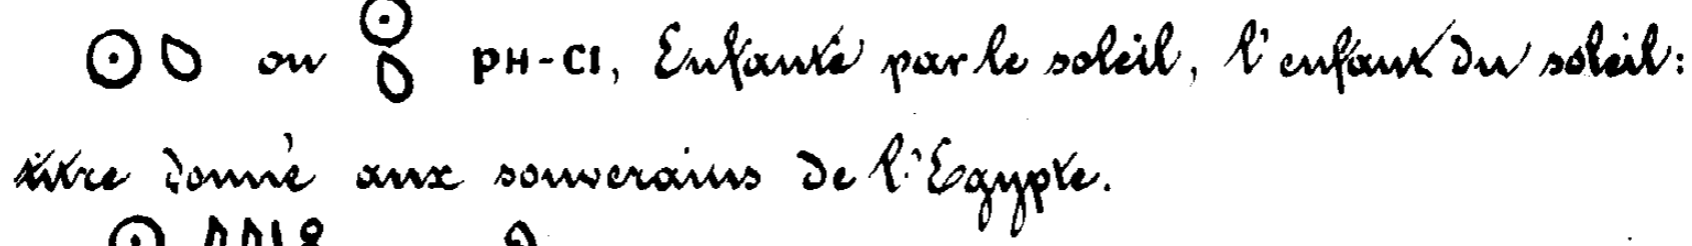 ou ⲢⲎ-ⲤⲒ, Enfanté par le soleil, l'enfant du soleil:
titre donné aux souverains de l'Egypte.